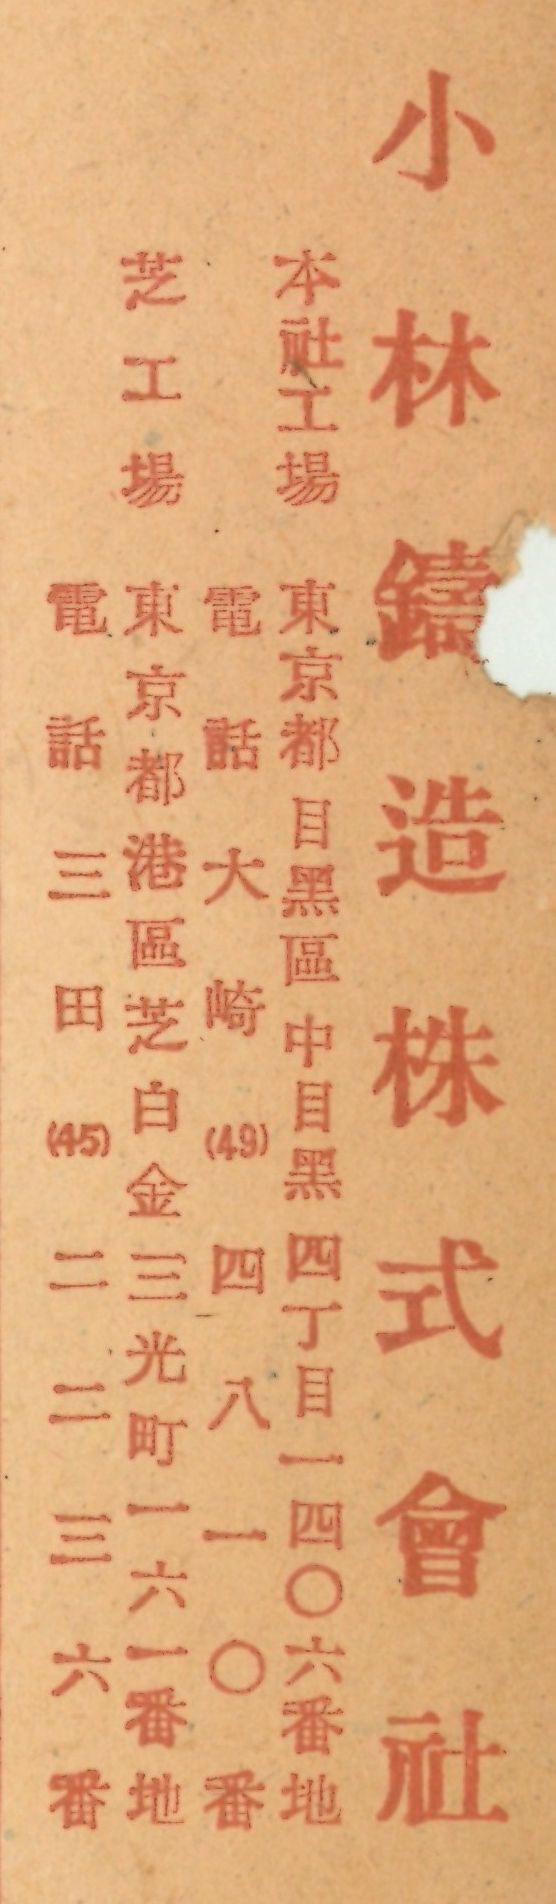 小林鑄造株式會社
本社工場 東京都目黑區中目黑四丁目一四〇六番地
電話大崎(49)四八一〇番
芝工場 東京都港區芝白金三光町一六一番地
電話三田(45)二二三六番